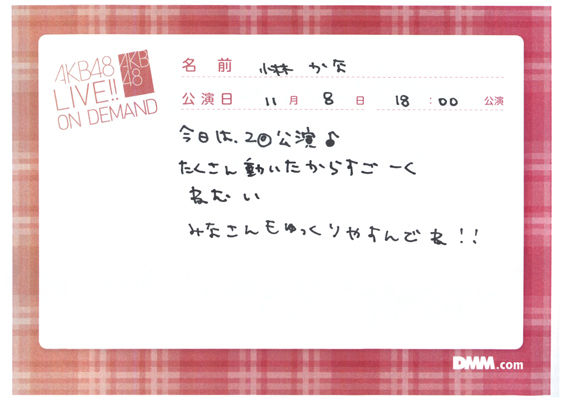 AKB48
LIVE!!
ON DEMAND
AKB
48
名前 小林 かな
公演日 11月 8日 18:00 公演
今日は、2回公演♪
たくさん動いたからすごーく
ねむい
みなさんもゆっくりやすんでね!!
DMM.com